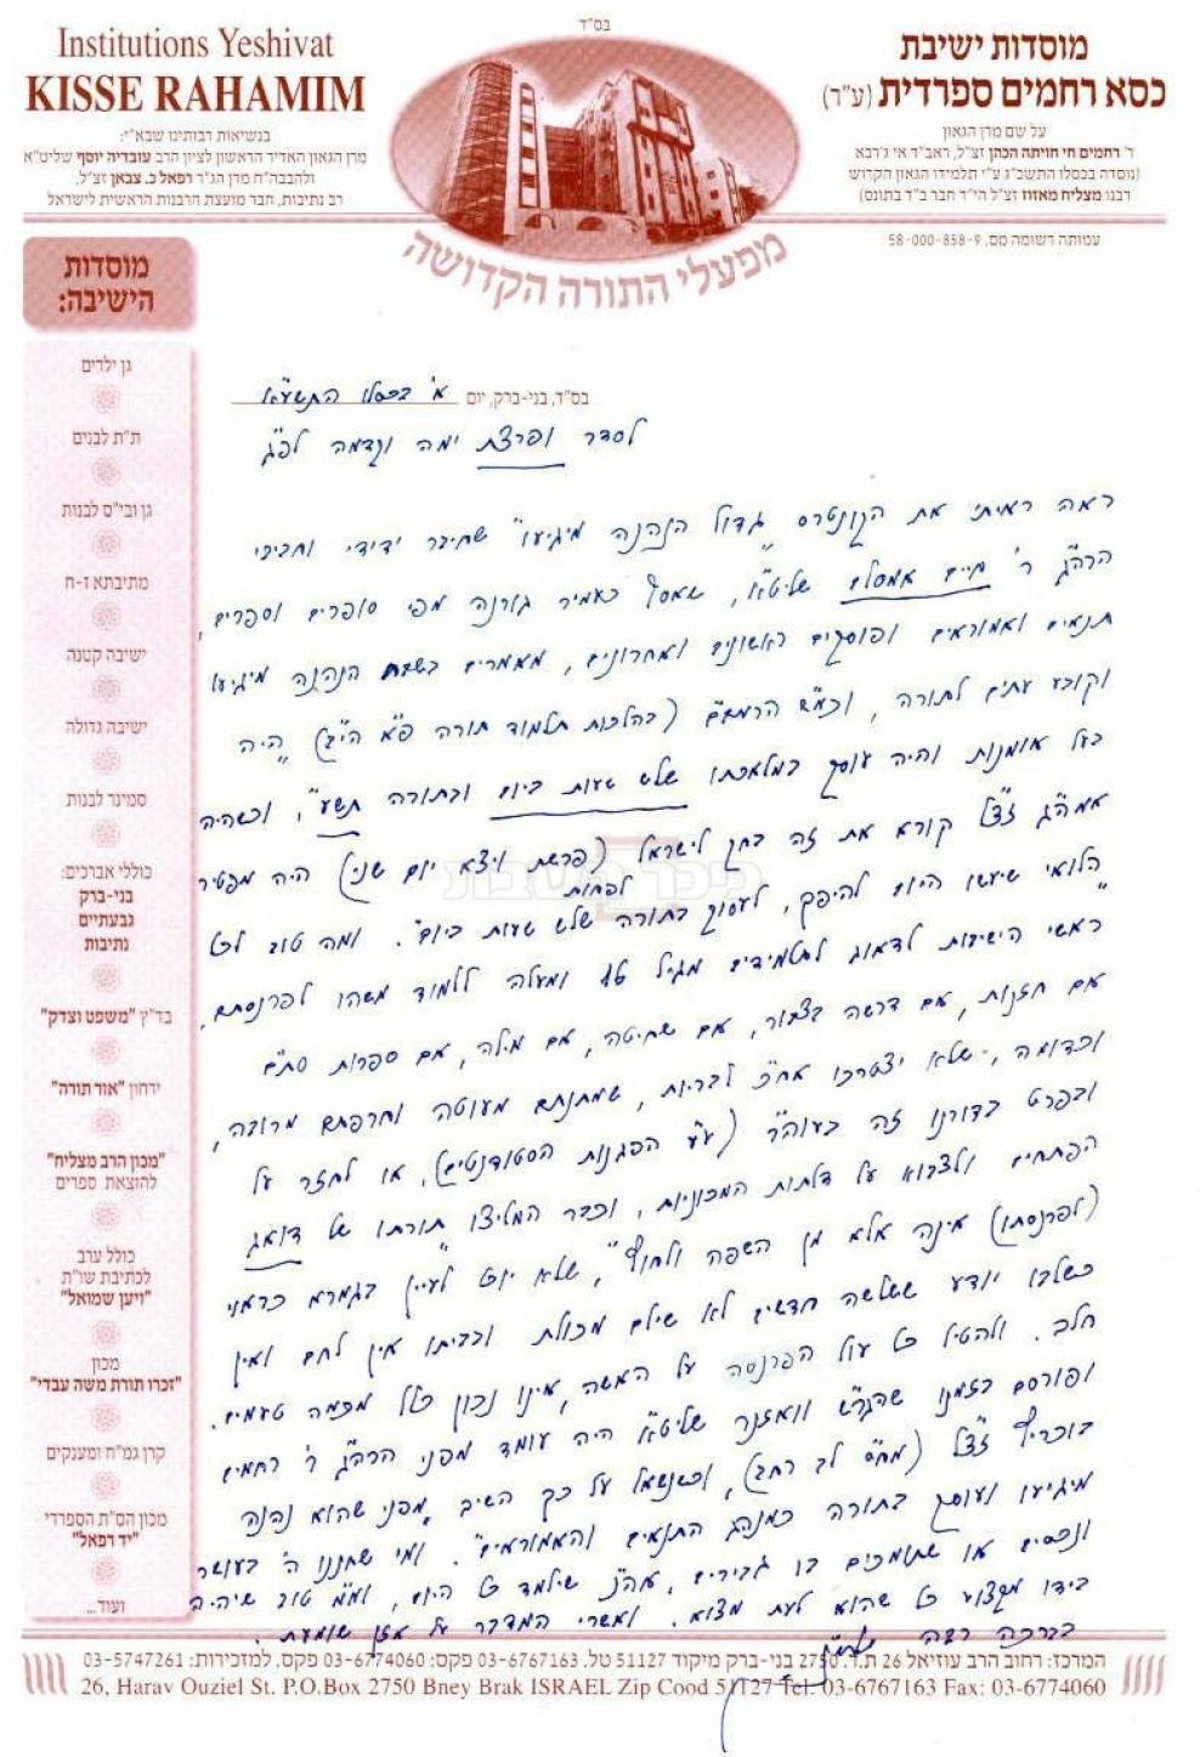 בס"ד
Institutions Yeshivat
KISSE RAHAMIM
בנשיאות רבותינו שבא"י:
מרן הגאון האדיר הראשון לציון הרב עובדיה יוסף שליט"א
ולהבבה"ח מרן הג"ר רפאל כ. צבאן זצ"ל,
רב נתיבות, חבר מועצת הרבנות הראשית לישראל
מוסדות ישיבת
כסא רחמים ספרדית (ע"ר)
על שם מרן הגאון
ר' רחמים חי חויתה הכהן זצ"ל, ראב"ד אי ג'רבא
(נוסדה בכסלו התשכ"ג ע"י תלמידו הגאון הקדוש
רבנו מצליח מאזוז זצ"ל הי"ד חבר ב"ד בתונס)
עמותה רשומה מס. 58-000-858-9
מפעלי התורה הקדושה
מוסדות
הישיבה:
גן ילדים
ת"ת לבנים
גן ובי"ס לבנות
מתיבתא ז-ח
ישיבה קטנה
ישיבה גדולה
סמינר לבנות
כוללי אברכים:
בני-ברק
גבעתיים
נתיבות
בד"ץ "משפט וצדק"
ירחון "אור תורה"
"מכון הרב מצליח"
להוצאת ספרים
כולל ערב
לכתיבת שו"ת
"ויען שמואל"
מכון
"זכרו תורת משה עבדי"
קרן גמ"ח ומענקים
מכון הס"ת הספרדי
"יד רפאל"
ועוד...
בס"ד, בני-ברק, יום א' בכסלו התשע"א
לסדר ופרצת ימה וקדמה לפ"ג
ראה ראיתי את הקונטרס "גדול הנהנה מיגיעו" שחיבר ידידי וחביבי
הרה"ג ר' חיים אמסלם שליט"א, שאסף כעמיר גורנה מפי סופרים וספרים,
תנאים ואמוראים ופוסקים ראשונים ואחרונים, מאמרים בשבח הנהנה מיגיעו
וקובע עתים לתורה, וכמ"ש הרמב"ם (בהלכות תלמוד תורה פ"א הי"ב) "היה
בעל אומנות והיה עוסק במלאכתו שלש שעות ביום ובתורה תשע", וכשהיה
אמה"ג זצ"ל קורא את זה בחק לישראל (פרשת ויצא יום שני) היה מפטיר
"הלואי שיעשו היום להיפך, לעסוק בתורה לפחות שלש שעות ביום". ומה טוב לכל
ראשי הישיבות לדאוג לתלמידים מגיל 16 ומעלה ללמוד משהו לפרנסתם,
אם חזנות, אם דרשה בצבור, אם שחיטה, אם מילה, אם ספרות סת"ם
וכדומה, שלא יצטרכו אח"כ לבריות, שמתנתם מעוטה וחרפתם מרובה,
ובפרט בדורנו זה בעוה"ר (ע"ע הפגנות הסטודנטים), או לחזר על
הפתחים ולצבוא על דלתות המכוניות, וכבר המליצו "תורתו של דואג
(לפרנסתו) אינה אלא מן השפה ולחוץ", שלא יוכל לעיין בגמרא כראוי
כשלבו יודע ששלשה חדשים לא שילם מכולת ובביתו אין לחם ואין
חלב. ולהטיל כל עול הפרנסה על האשה, אינו נכון כלל מכמה טעמים.
ופורסם בזמנו שהגר"ש וואזנר שליט"א היה עומד מפני הרה"ג ר' רחמים
בוכריץ זצ"ל (מח"ס לב רחב), וכשנשאל על כך השיב "מפני שהוא נהנה
מיגיעו ועוסק בתורה כמנהג התנאים והאמוראים". ומי שחננו ה' בעושר
ונכסים או שתומכים בו גבירים, אה"נ שילמד כל היום, ומ"מ טוב שיהיה
בידו מקצוע כל שהוא לעת מצוא. ואשרי המדבר על אזן שומעת.
בברכה רבה
המרכז: רחוב הרב עוזיאל 26 ת.ד. 2750 בני-ברק מיקוד 51127 טל. 03-6767163 פקס: 03-6774060 פקס, למזכירות: 03-5747261
26, Harav Ouziel St. P.O.Box 2750 Bney Brak ISRAEL Zip Cood 51127 Tel. 03-6767163 Fax: 03-6774060